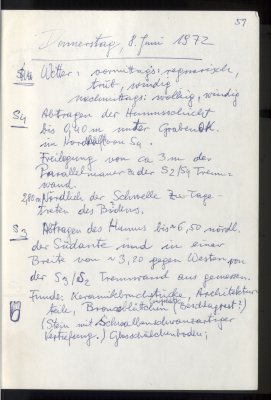 57
Donnerstag, 8. Juni 1972
Wetter: vormittags: regnerisch,
trüb, windig
nachmittags: wolkig, windig
S4 Abtragen der Humusschicht
bis 0,40 m unter Grabenok.
im Nordteil von S4.
Freilegung von ca 3 m der
Parallelmauer & der S2/S4 Trenn-
wand.
Nördlich der Schwelle zu Tage-
treten des Bodens.
S3 Abtragen des Humus bis 6,50 nördl.
der Südkante und in einer
Breite von ~ 3,20 gegen Westen von
der S3/S2 Trennwand aus gemessen.
Funde: Keramikbruchstücke, Architektur-
teile, Bronzeblättchen (Beschlagrest?)
(Stein mit Schwalbenschwanzartiger
Vertiefung.) Glasschälchenboden;